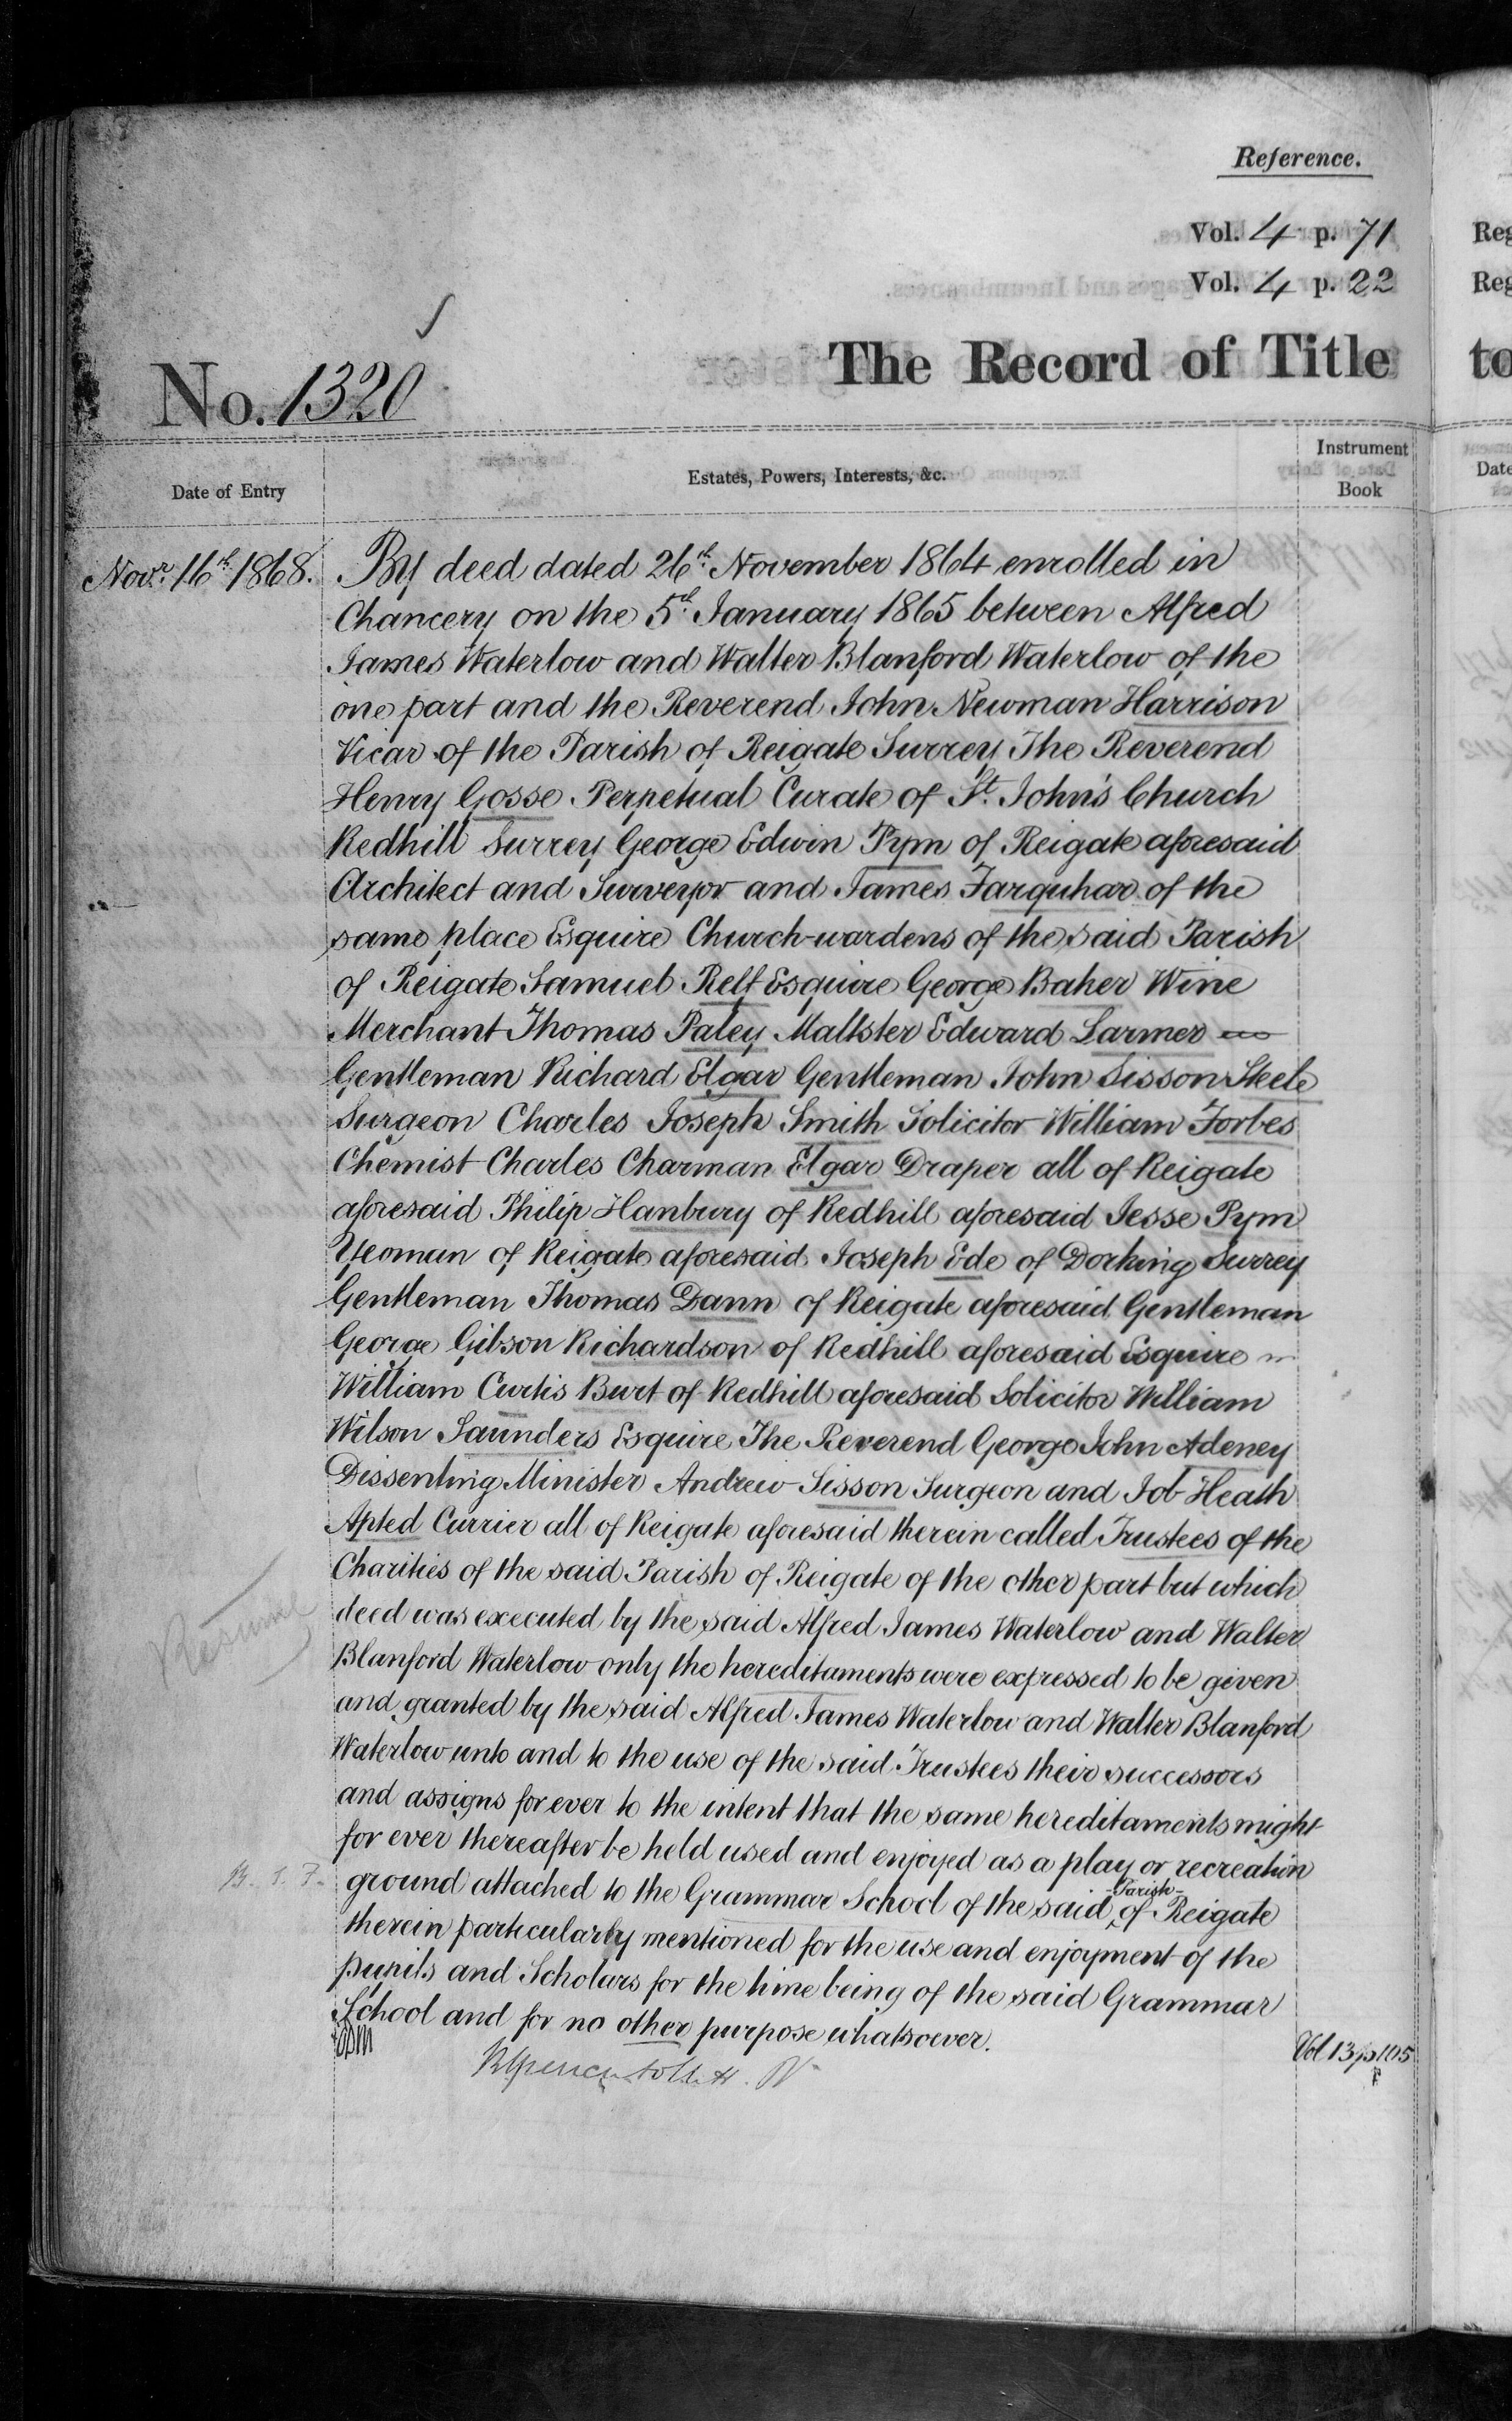 Reference.
Vol. 4 p. 71
Vol. 4 p. 22
No. 1320
The Record of Title
Date of Entry
Estates, Powers, Interests, &c.
Instrument Book
Novr. 16th 1868.
By deed dated 26th November 1864 enrolled in
Chancery on the 5th January 1865 between Alfred
James Waterlow and Walter Blanford Waterlow of the
one part and the Reverend John Newman Harrison
Vicar of the Parish of Reigate Surrey The Reverend
Henry Gosse Perpetual Curate of St. John's Church
Redhill Surrey George Edwin Pym of Reigate aforesaid
Architect and Surveyor and James Farquhar of the
same place Esquire Church-wardens of the said Parish
of Reigate Samuel Relf Esquire George Baker Wine
Merchant Thomas Paley Maltster Edward Larmer
Gentleman Richard Elgar Gentleman John Sisson Steele
Surgeon Charles Joseph Smith Solicitor William Forbes
Chemist Charles Charman Elgar Draper all of Reigate
aforesaid Philip Hanbury of Redhill aforesaid Jesse Pym
Yeoman of Reigate aforesaid Joseph Ede of Dorking Surrey
Gentleman Thomas Dann of Reigate aforesaid Gentleman
George Gibson Richardson of Redhill aforesaid Esquire
William Curtis Burt of Redhill aforesaid Solicitor William
Wilson Saunders Esquire The Reverend George John Adeney
Dissenting Minister Andrew Sisson Surgeon and Job Heath
Apted Currier all of Reigate aforesaid therein called Trustees of the
Charities of the said Parish of Reigate of the other part but which
deed was executed by the said Alfred James Waterlow and Walter
Blanford Waterlow only the hereditaments were expressed to be given
and granted by the said Alfred James Waterlow and Walter Blanford
Waterlow unto and to the use of the said Trustees their successors
and assigns for ever to the intent that the same hereditaments might
for ever thereafter be held used and enjoyed as a play or recreation
ground attached to the Grammar School of the said Parish of Reigate
therein particularly mentioned for the use and enjoyment of the
pupils and Scholars for the time being of the said Grammar
School and for no other purpose whatsoever.
Vol 13 p 105